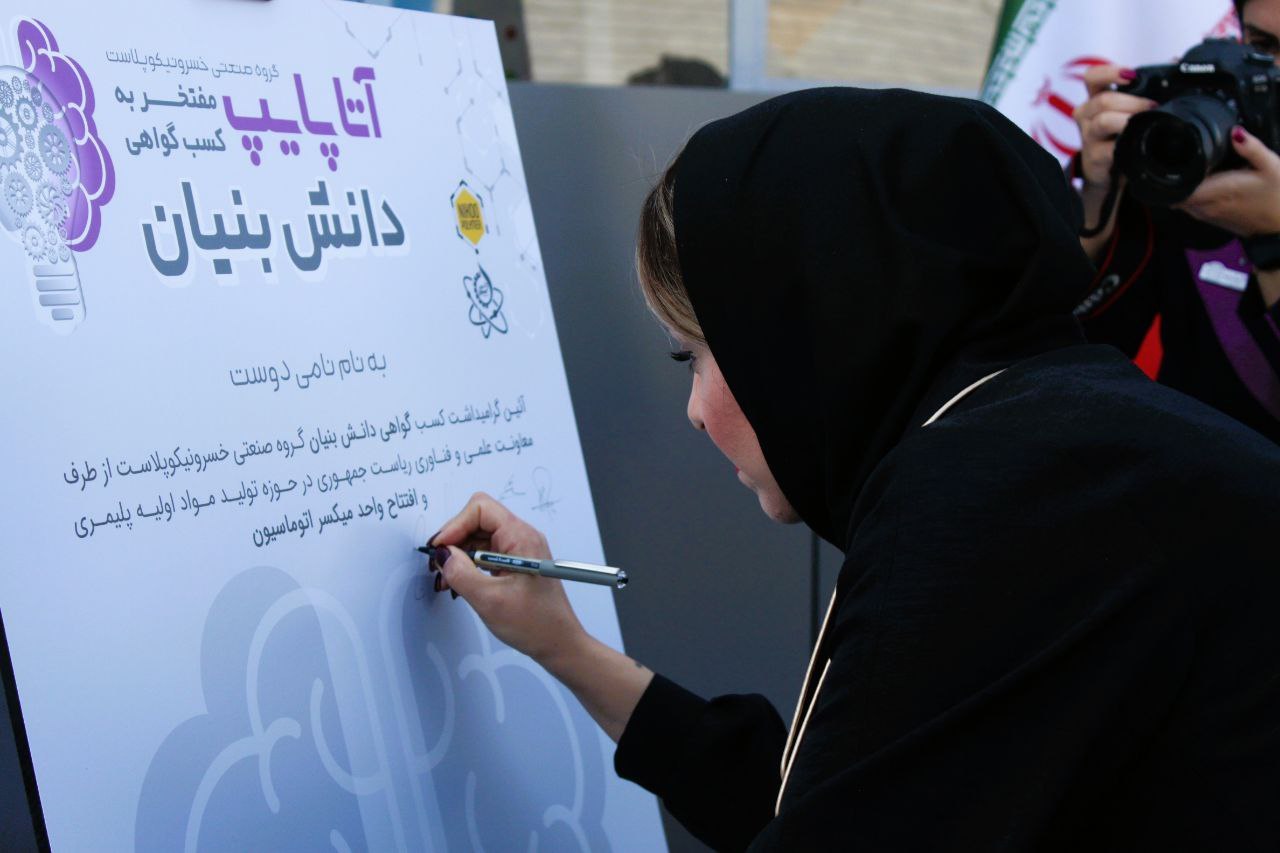 گروه صنعتی خسرونیکوپلاست
آتاپایپ
مفتخر به
کسب گواهی
دانش بنیان
NIKOO
POLYMER
به نام نامی دوست
آئین گرامیداشت کسب گواهی دانش بنیان گروه صنعتی خسرونیکوپلاست از طرف
معاونت علمی و فناوری ریاست جمهوری در حوزه تولید مواد اولیه پلیمری
و افتتاح واحد میکسر اتوماسیون
Canon